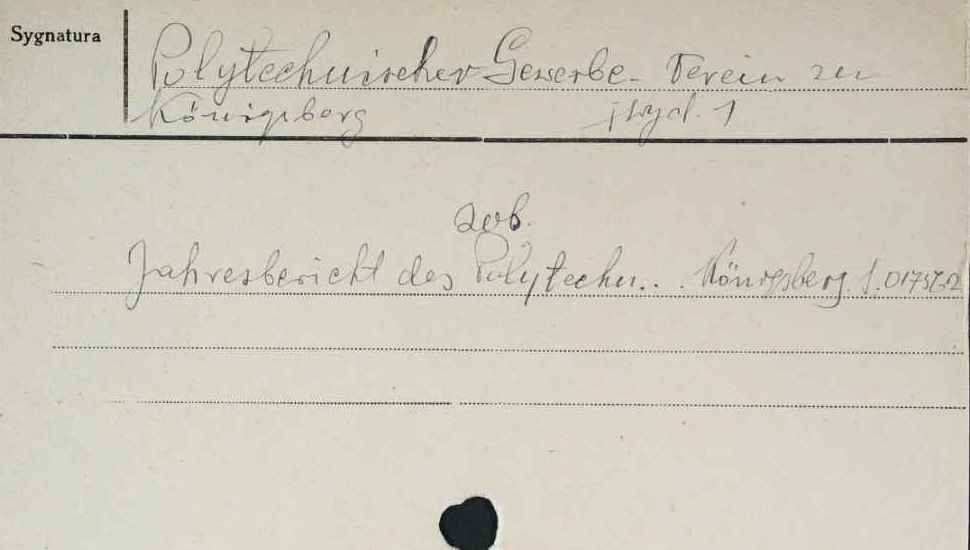 Sygnatura
Polytechnischer Gewerbe-Verein zu
Königsberg [wyd. 1
zob.
Jahresbericht des Polytechn... Königsberg.